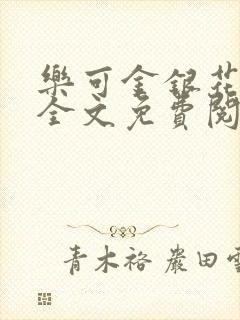 樂可金銀花
全文免費閱
青木裕 巖田雪